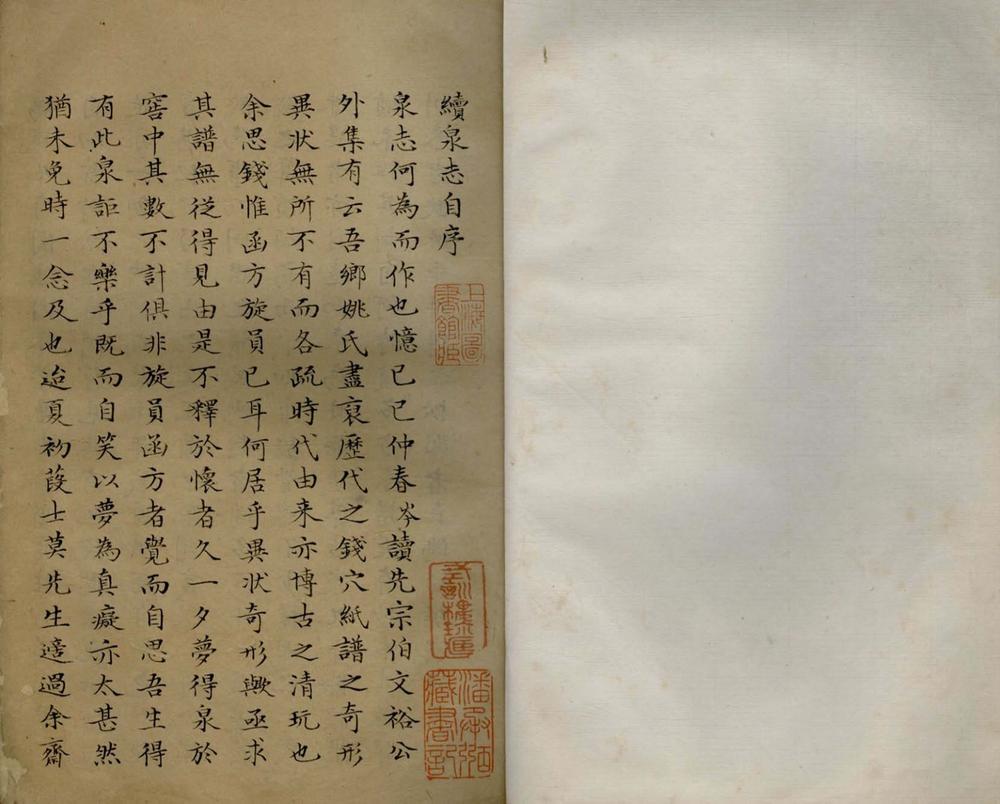 續泉志自序
泉志何為而作也憶己巳仲春岑讀先宗伯文裕公
外集有云吾鄉姚氏盡裒歷代之錢穴紙譜之奇形
異狀無所不有而各疏時代由来亦博古之清玩也
余思錢惟函方旋員已耳何居乎異狀奇形歟亟求
其譜無從得見由是不釋於懷者久一夕夢得泉於
窖中其數不計俱非旋員函方者覺而自思吾生得
有此泉詎不樂乎既而自笑以夢為真癡亦太甚然
猶未免時一念及也迨夏初葭士莫先生適過余齋
上海圖
書館藏
潘承弼
藏書記